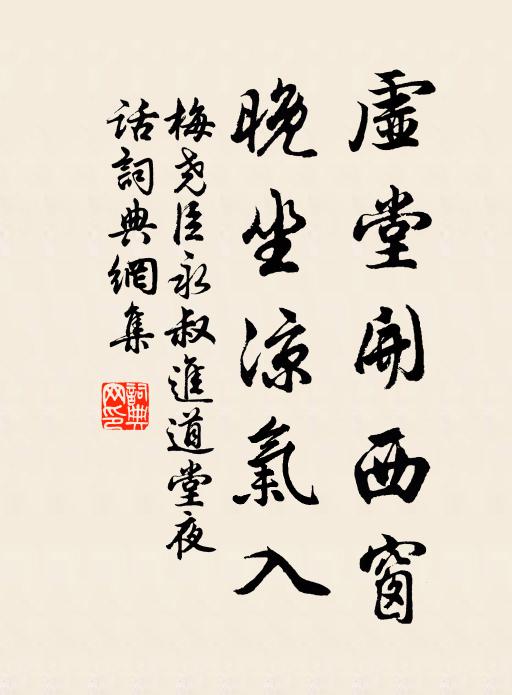 虛堂開西窗
晚坐涼氣入
梅尧臣永叔進道堂夜
话詞典網集
詞典
网印